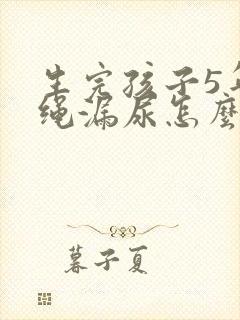 生完孩子5年
绳漏尿怎麼
暮子夏